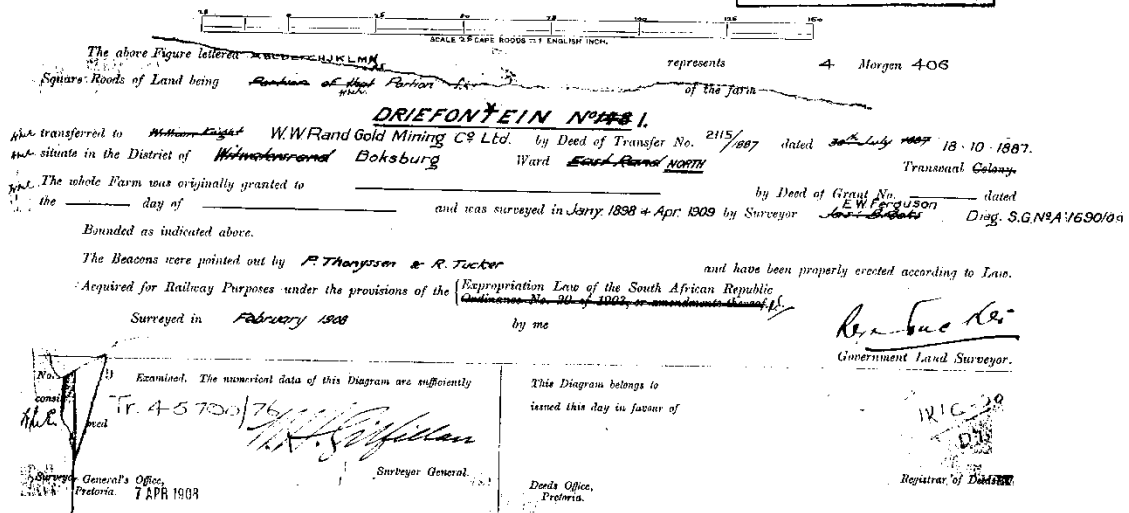 25 0 25 50 75 100 125 150
SCALE 25 CAPE ROODS = 1 ENGLISH INCH.
The above Figure lettered ABCDEFGHJKLMN represents 4 Morgen 406
Square Roods of Land being Portion of that Portion of the farm
DRIEFONTEIN No 1.
transferred to William Knight W.W Rand Gold Mining Co Ltd. by Deed of Transfer No. 2115/1887 dated 30th July 1887 18-10-1887.
situate in the District of Witwatersrand Boksburg Ward East Rand NORTH Transvaal Colony.
The whole Farm was originally granted to by Deed of Grant No. dated
the day of and was surveyed in Jany. 1898 & Apr. 1909 by Surveyor E.W Ferguson Diag. S.G. No A 1690/09
Bounded as indicated above.
The Beacons were pointed out by P. Thonyssen & R. Tucker and have been properly erected according to Law.
Acquired for Railway Purposes under the provisions of the Expropriation Law of the South African Republic
Ordinance No. of 1903, or amendments thereof
Surveyed in February 1908 by me
Government Land Surveyor.
No. Examined. The numerical data of this Diagram are sufficiently
consis
Tr. 45700/76
oved
Surveyor General.
Surveyor General's Office,
Pretoria. 7 APR 1908
This Diagram belongs to
issued this day in favour of
Deeds Office,
Pretoria.
Registrar of Deeds